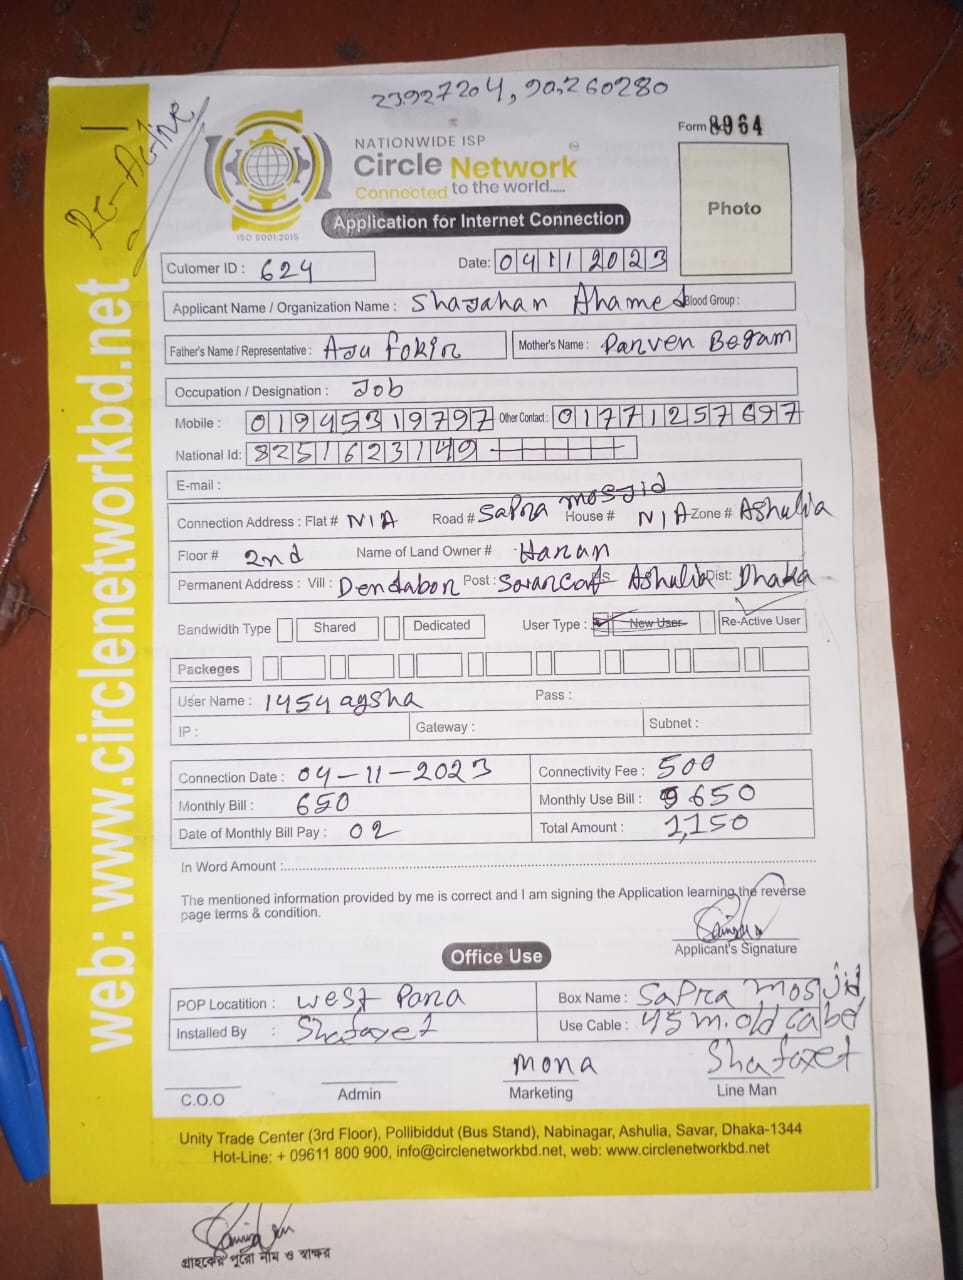 23.927204, 90.260280
Re-Active
Form 8964
NATIONWIDE ISP
Circle Network
Connected to the world.....
ISO 9001:2015
Photo
Application for Internet Connection
Cutomer ID : 624
Date: 04112023
Applicant Name / Organization Name : Shajahan Ahamed Blood Group :
Father's Name / Representative : Aju fokir Mother's Name : Parven Begam
Occupation / Designation : Job
Mobile : 01945319797 Other Contact : 01771257697
National Id: 8251623149
E-mail :
Connection Address : Flat # N/A Road # Sapra mosjid House # N/A Zone # Ashulia
Floor # 2nd Name of Land Owner # Hanan
Permanent Address : Vill : Dendabor Post : Ps Ashulia Dist: Dhaka
Bandwidth Type Shared Dedicated User Type : New User Re-Active User
Packeges
User Name : 1454 aysha Pass :
IP : Gateway : Subnet :
Connection Date : 04-11-2023 Connectivity Fee : 500
Monthly Bill : 650 Monthly Use Bill : 650
Date of Monthly Bill Pay : 02 Total Amount : 1,150
In Word Amount :
The mentioned information provided by me is correct and I am signing the Application learning the reverse
page terms & condition.
Applicant's Signature
Office Use
POP Locatition : West Para Box Name : Sapra mosjid
Installed By : Shafayet Use Cable : 45 m. old cabel
Mona Shafayet
C.O.O Admin Marketing Line Man
Unity Trade Center (3rd Floor), Pollibiddut (Bus Stand), Nabinagar, Ashulia, Savar, Dhaka-1344
Hot-Line: + 09611 800 900, info@circlenetworkbd.net, web: www.circlenetworkbd.net
web: www.circlenetworkbd.net
গ্রাহকের পুরো নাম ও স্বাক্ষর